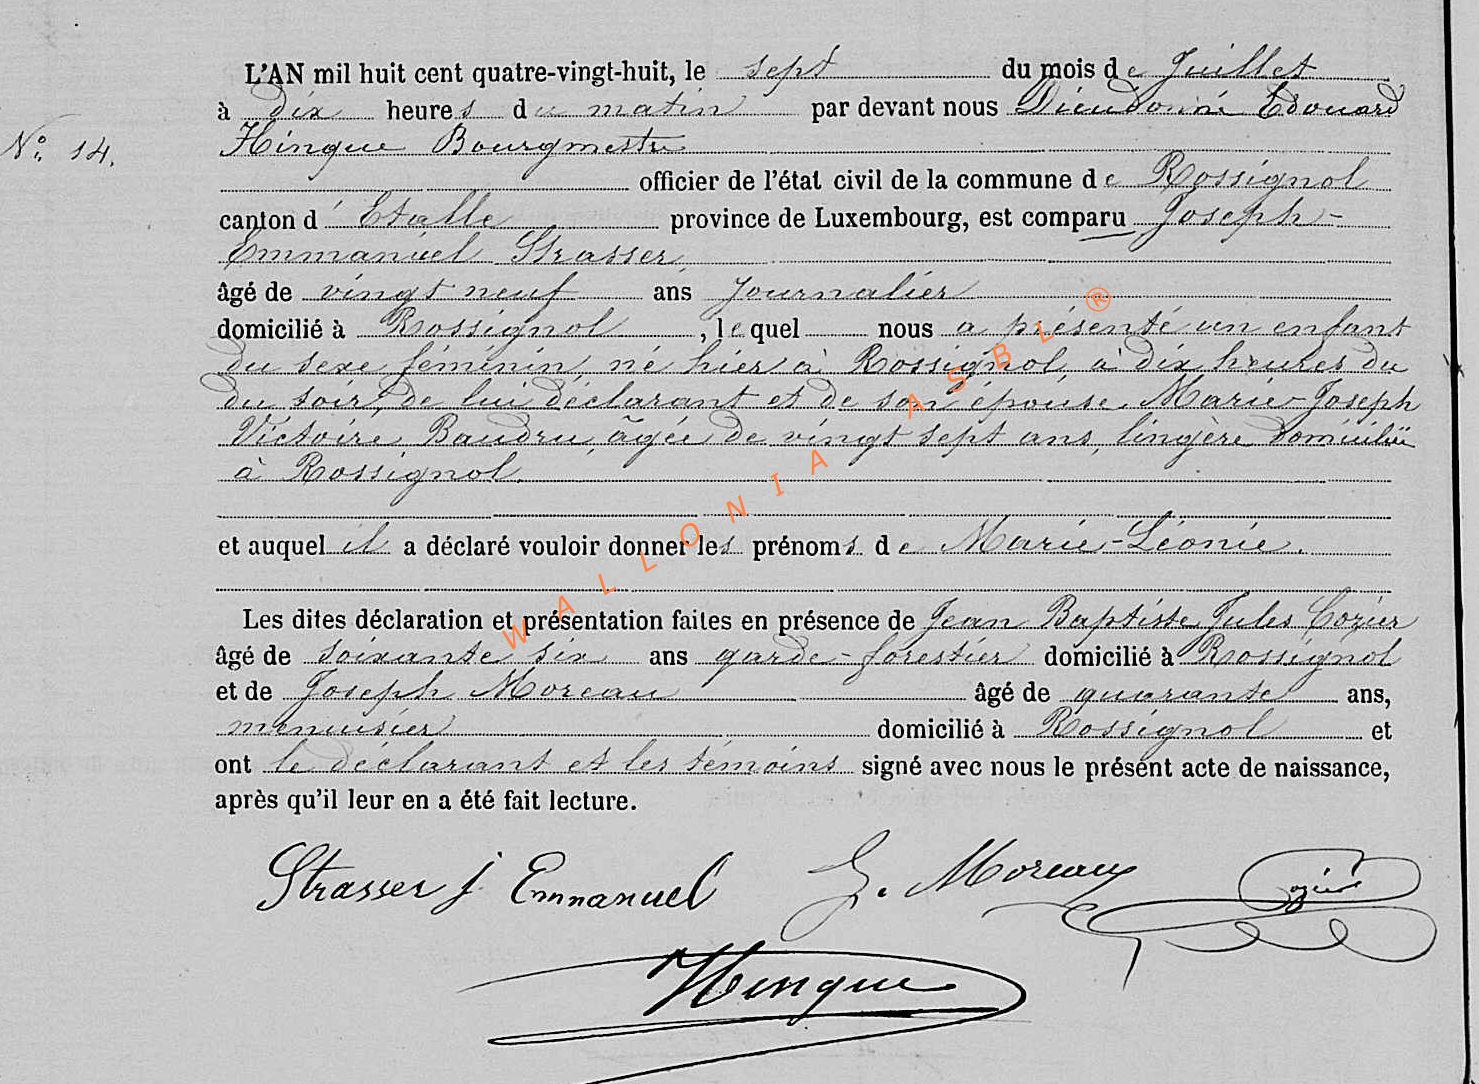 L'AN mil huit cent quatre-vingt-huit, le sept du mois de Juillet
à dix heures du matin par devant nous Dieudonné Edouard
N° 14. Hinque Bourgmestre
officier de l'état civil de la commune de Rossignol
canton d'Etalle province de Luxembourg, est comparu Joseph-
Emmanuel Strasser,
âgé de vingt neuf ans Journalier
domicilié à Rossignol, lequel nous a présenté un enfant
du sexe féminin, né hier à Rossignol, à dix heures du
du soir, de lui déclarant et de son épouse Marie-Joseph
Victoire Baudru, âgée de vingt sept ans, lingère domiciliée
à Rossignol.
et auquel il a déclaré vouloir donner les prénoms de Marie-Léonie.
Les dites déclaration et présentation faites en présence de Jean Baptiste Jules Cozier
âgé de soixante six ans garde-forestier domicilié à Rossignol
et de Joseph Moreau âgé de quarante ans,
menuisier domicilié à Rossignol et
ont le déclarant et les témoins signé avec nous le présent acte de naissance,
après qu'il leur en a été fait lecture.
Strasser j. Emmanuel J. Moreau Cozier
Hinque
WALLONIA ASBL ®